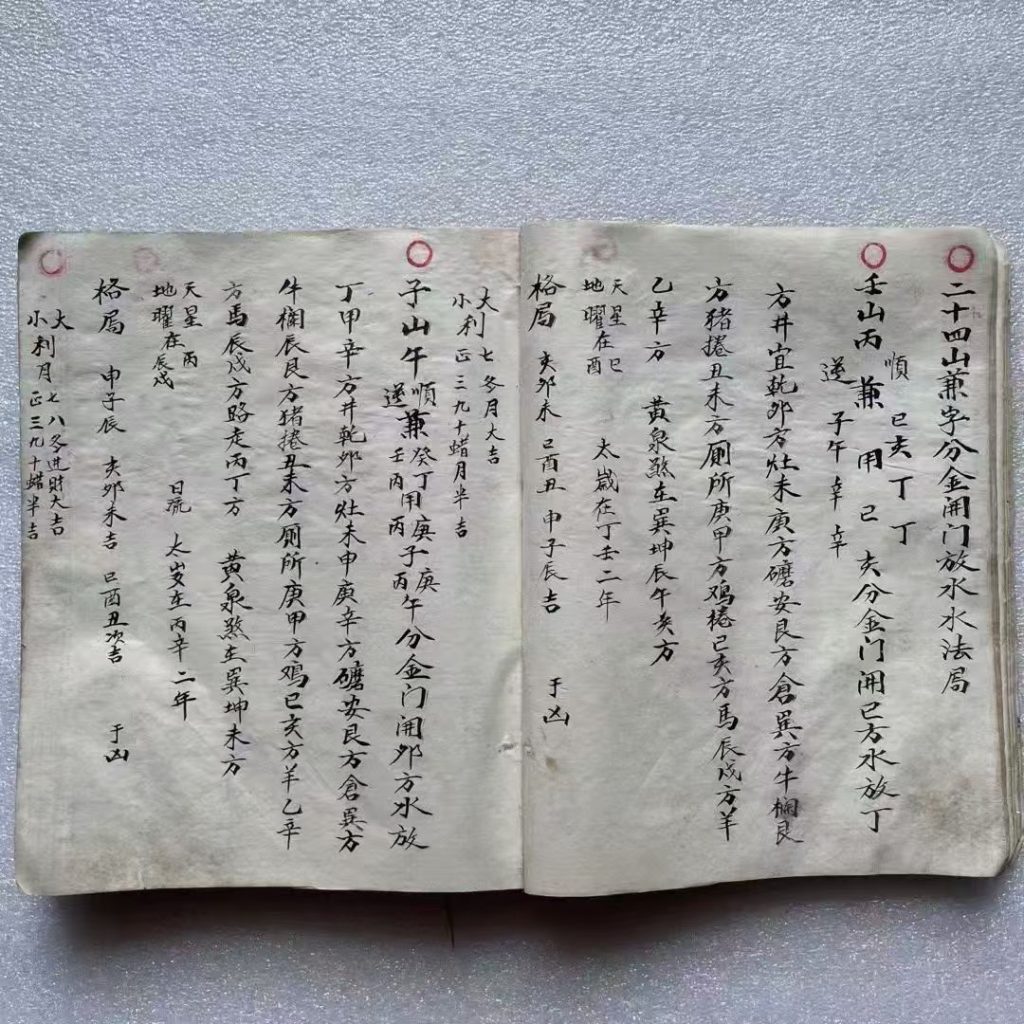 二十四山兼字分金開门放水水法局
壬山丙兼 順 巳亥 丁丁 逆 子午 辛辛 用巳亥分金门開巳方水放丁
方井宜乾卯方灶未庚方礌安艮方倉巽方牛欄艮
方猪捲丑未方厠所庚甲方鸡棬巳亥方馬辰戌方羊
乙辛方 黄泉煞在巽坤辰午亥方
天星在巳 太歲在丁壬二年
地曜在酉
格局 亥卯未 巳酉丑 申子辰吉 于凶
大 七冬月大吉
小利 正三九十蜡月半吉
子山午 順 逆 兼 癸丁 壬丙 用庚子庚 丙午 丙分金门開卯方水放
丁甲辛方井乾卯方灶未申庚辛方礌安艮方倉巽方
牛欄辰艮方猪捲丑未方厠所庚甲方鸡巳亥方羊乙辛
方馬辰戌方路走丙丁方 黄泉煞在巽坤未方
天星 丙 日流 太岁在丙辛二年
地曜在辰戌
格局 申子辰 亥卯未吉 巳酉丑次吉 于凶
大 七八冬进財大吉
小利月 正三九十蜡半吉